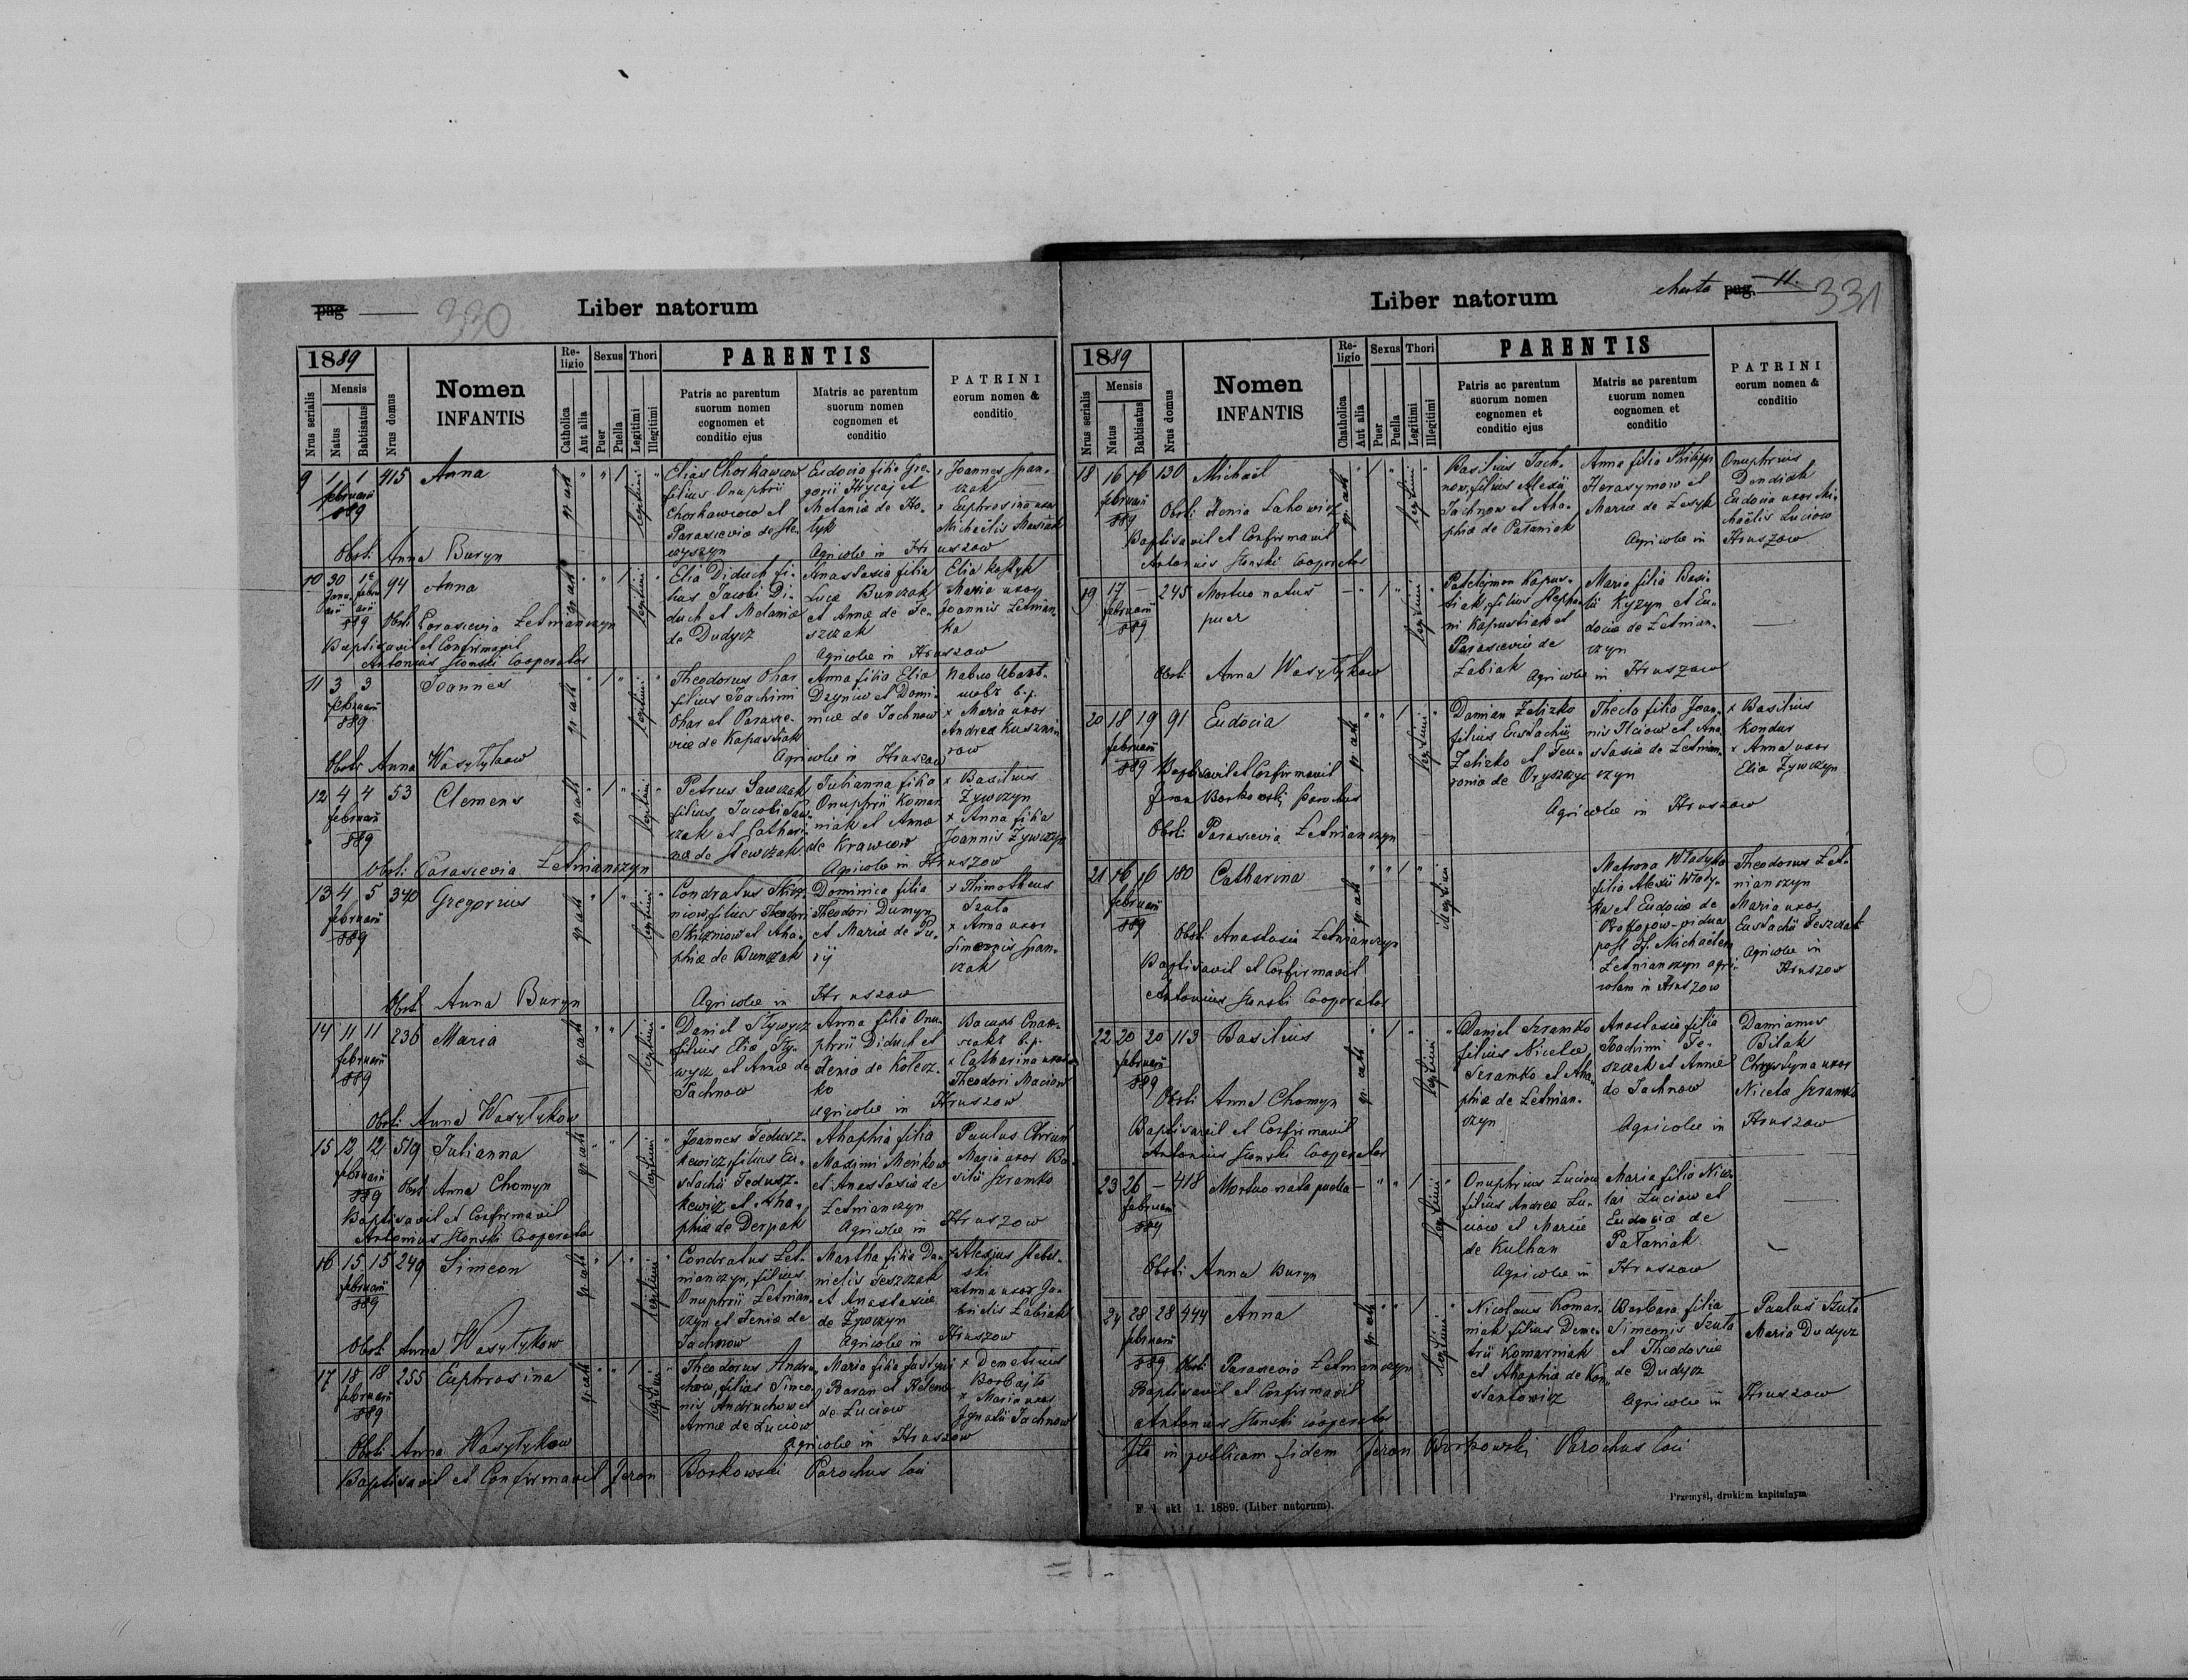 pag
330
Liber natorum
1889
Nrus serialis
Mensis
Natus
Babtisatus
Nrus domus
Nomen
INFANTIS
Re-
ligio
Catholica
Aut alia
Sexus
Puer
Puella
Thori
Legitimi
Illegitimi
PARENTIS
Patris ac parentum
suorum nomen
cognomen et
conditio ejus
Matris ac parentum
suorum nomen
cognomen et
conditio
PATRINI
eorum nomen &
conditio
9 1 1 415 Anna
februarii
889
Obst. Anna Buryn
gr. cath
legitimi
Elias Chorkawcow
filius Onuphrii
Chorkawcow et
Parascevia de
Eudocia filia Gre-
gorii Hrycaj et
Melaniæ de Ho-
tyk
Agricolæ in Hruszow
Joannes Span-
czak
x Euphrosina uxor
Michaëlis
10 30 94 Anna
889
Obsti Parascevia Letnianczyn
Baptisavit et Confirmavit
Antonius Stonski Cooperator
gr. cath
legitimi
Elia Diduch fi-
lius Jacobi Di-
duch et Melaniæ
de Dudycz
Anastasia filia
Lucæ Bunczak
et Annæ de Te-
szczak
Agricolæ in Hruszow
Elia Kostyk
Maria uxor
Joannis Letnian-
ka
11 3 3 Joannes
februarii
889
Obsti Anna Wasylykow
gr. cath
legitimi
Theodorus Ohar
filius Joachimi
Ohar et Parasce-
viæ de Kapustiak
Anna filia Elia
Dzyniw et Domi-
nicæ de Jachnow
Agricolæ in Hruszow
x Maria uxor
Andrea Kusznin
row
12 4 4 53 Clemens
februarii
889
Obsti Parascevia Letnianczyn
gr. cath
legitimi
Petrus Sawczak
filius Jacobi Saw-
czak et Cathari-
næ de Stewczak
Julianna filia
Onuphrii Komar
niak et Annæ
de Krawcow
Agricolæ in Hruszow
x Basilius
Zywczyn
x Anna filia
Joannis Zywczyn
13 4 5 340 Gregorius
februarii
889
Obst. Anna Buryn
gr. cath
legitimi
Condratus Skicz-
niow, filius Theodori
Skiczniow et Aha-
phiæ de Bunczak
Dominica filia
Theodori Dumyn
et Mariæ de Pu-
rij
Agricolæ in Hruszow
x Thimotheus
Szuta
x Anna uxor
Simeonis Span-
czak
14 11 11 236 Maria
februarii
889
Obsti Anna Wasylykow
gr. cath
legitimi
Daniel Hywycz
filius Eliæ Hy-
wycz et Annæ de
Jachnow
Anna filia Onu-
phrii Diduch et
Xenia de Kolecz-
ko
agricolæ in Hruszow
x Catharina uxor
Theodori Maciow
15 12 12 519 Julianna
februarii
889
Obst. Anna Chomyn
Baptisavit et Confirmavit
Antonius Stonski Cooperator
gr. cath
legitimi
Joannes Fedusz-
kewicz, filius Eu-
stachii Fedusz-
kewicz et Aha-
phiæ de Derpak
Ahaphia filia
Maximi Menkow
et Anastasiæ de
Letnianczyn
Agricolæ in Hruszow
Paulus
Maria uxor Ba-
silii Szramko
16 15 15 249 Simeon
februarii
889
Obst. Anna Wasylykow
gr. cath
legitimi
Condratus Let-
nianczyn, filius
Onuphrii Letnian-
czyn et Xeniæ de
Jachnow
Martha filia Da-
nielis Teszczak
et Anastasiæ
de Zywczyn
Agricolæ in Hruszow
x Alexius Stebel-
ski
x Anna uxor Ga-
brielis Labiak
17 18 18 255 Euphrosina
februarii
889
Obsti Anna Wasylykow
gr. cath
legitimi
Theodorus Andru-
chow, filius Simeo-
nis Andruchow et
Annæ de Luciow
Maria filia Justyni
Baran et Helenæ
de Luciow
Agricolæ in Hruszow
x Demetrius
Borbajto
x Maria uxor
Ignatii Jachnow
Baptisavit et Confirmavit Jeron Borkowski Parochus loci
Liber natorum
charta pag. 11.
331
1889
Nrus serialis
Mensis
Natus
Babtisatus
Nrus domus
Nomen
INFANTIS
Re-
ligio
Chatholica
Aut alia
Sexus
Puer
Puella
Thori
Legitimi
Illegitimi
PARENTIS
Patris ac parentum
suorum nomen
cognomen et
conditio ejus
Matris ac parentum
suorum nomen
cognomen et
conditio
PATRINI
eorum nomen &
conditio
18 16 16 130 Michaël
februarii
889
Obsti Xenia Lahowicz
Baptisavit et Confirmavit
Antonius Stonski Cooperator
gr. cath
legitimi
Basilius Jach-
now, filius Alexii
Jachnow et Aha-
phiæ de Pataniak
Anna filia Philippi
Harasymow et
Mariæ de Lesyk
Agricolæ in Hruszow
Onuphrius
Dendiak
Eudocia uxor Mi-
chaëlis Luciow
19 17 — 245 Mortuo natus
puer
februarii
889
Obsti Anna Wasylykow
legitimi
Patelejmon Kapus-
tiak, filius Stepha-
ni Kapustiak et
Parasceviæ de
Labiak
Maria filia Basi-
lii Kyzyn et Eu-
dociæ de Letnian-
czyn
Agricolæ in Hruszow
20 18 19 91 Eudocia
februarii
889
Baptisavit et Confirmavit
Jeron Borkowski Parochus
Obsti Parascevia Letnianczyn
gr. cath
legitimi
Damian Zelizko
filius Eustachii
Zelizko et Feu-
roniæ de Oryszczyc
Thecla filia Joan-
nis Ilciow et Ana
stasiæ de Letnian-
czyn
Agricolæ in Hruszow
x Basilius
Kondur
x Anna uxor
Elia Zywczyn
21 16 16 180 Catharina
februarii
889
Obsti Anastasia Letnianczyn
Baptisavit et Confirmavit
Antonius Stonski Cooperator
gr. cath
illegitimi
Matrona Wladyka
filia Alexii Wlady-
ka et Eudociæ de
Prokopów - vidua
post Michaëlem
Letnianczyn agri-
colam in Hruszow
Theodorus Let-
nianczyn
Maria uxor
Eustachii Teszczak
Agricolæ in
Hruszow
22 20 20 113 Basilius
februarii
889
Obsti Anna Chomyn
Baptisavit et Confirmavit
Antonius Stonski Cooperator
gr. cath
legitimi
Daniel Szramko
filius Nicetæ
Szramko et Aha-
phiæ de Letnian-
czyn
Anastasia filia
Joachimi Te-
szczak et Annæ
de Jachnow
Agricolæ in Hruszow
Damianus
Bilak
Chrystyna uxor
Nicetæ Szramko
23 26 — 418 Mortuo nata puella
februarii
889
Obsti Anna Buryn
legitimi
Onuphrius Luciow
filius Andreæ Lu-
ciow et Mariæ
de Kulhan
Maria filia Nico-
lai Luciow et
Eudociæ de
Pataniak
Agricolæ in Hruszow
24 28 28 444 Anna
februarii
889
Obsti Parascevia Letnianczyn
Baptisavit et Confirmavit
Antonius Stonski cooperator
gr. cath
legitimi
Nicolaus Komar-
niak filius Deme-
trii Komarniak
et Ahaphiæ de Kon-
stantowicz
Barbara filia
Simeonis Szuta
et Theodosiæ
de Dudycz
Agricolæ in Hruszow
Paulus Szuta
Maria Dudycz
Ita in publicam fidem Jeron Borkowski Parochus loci
F. 1 skł 1. 1889. (Liber natorum).
Przemyśl, drukiem kapitulnym